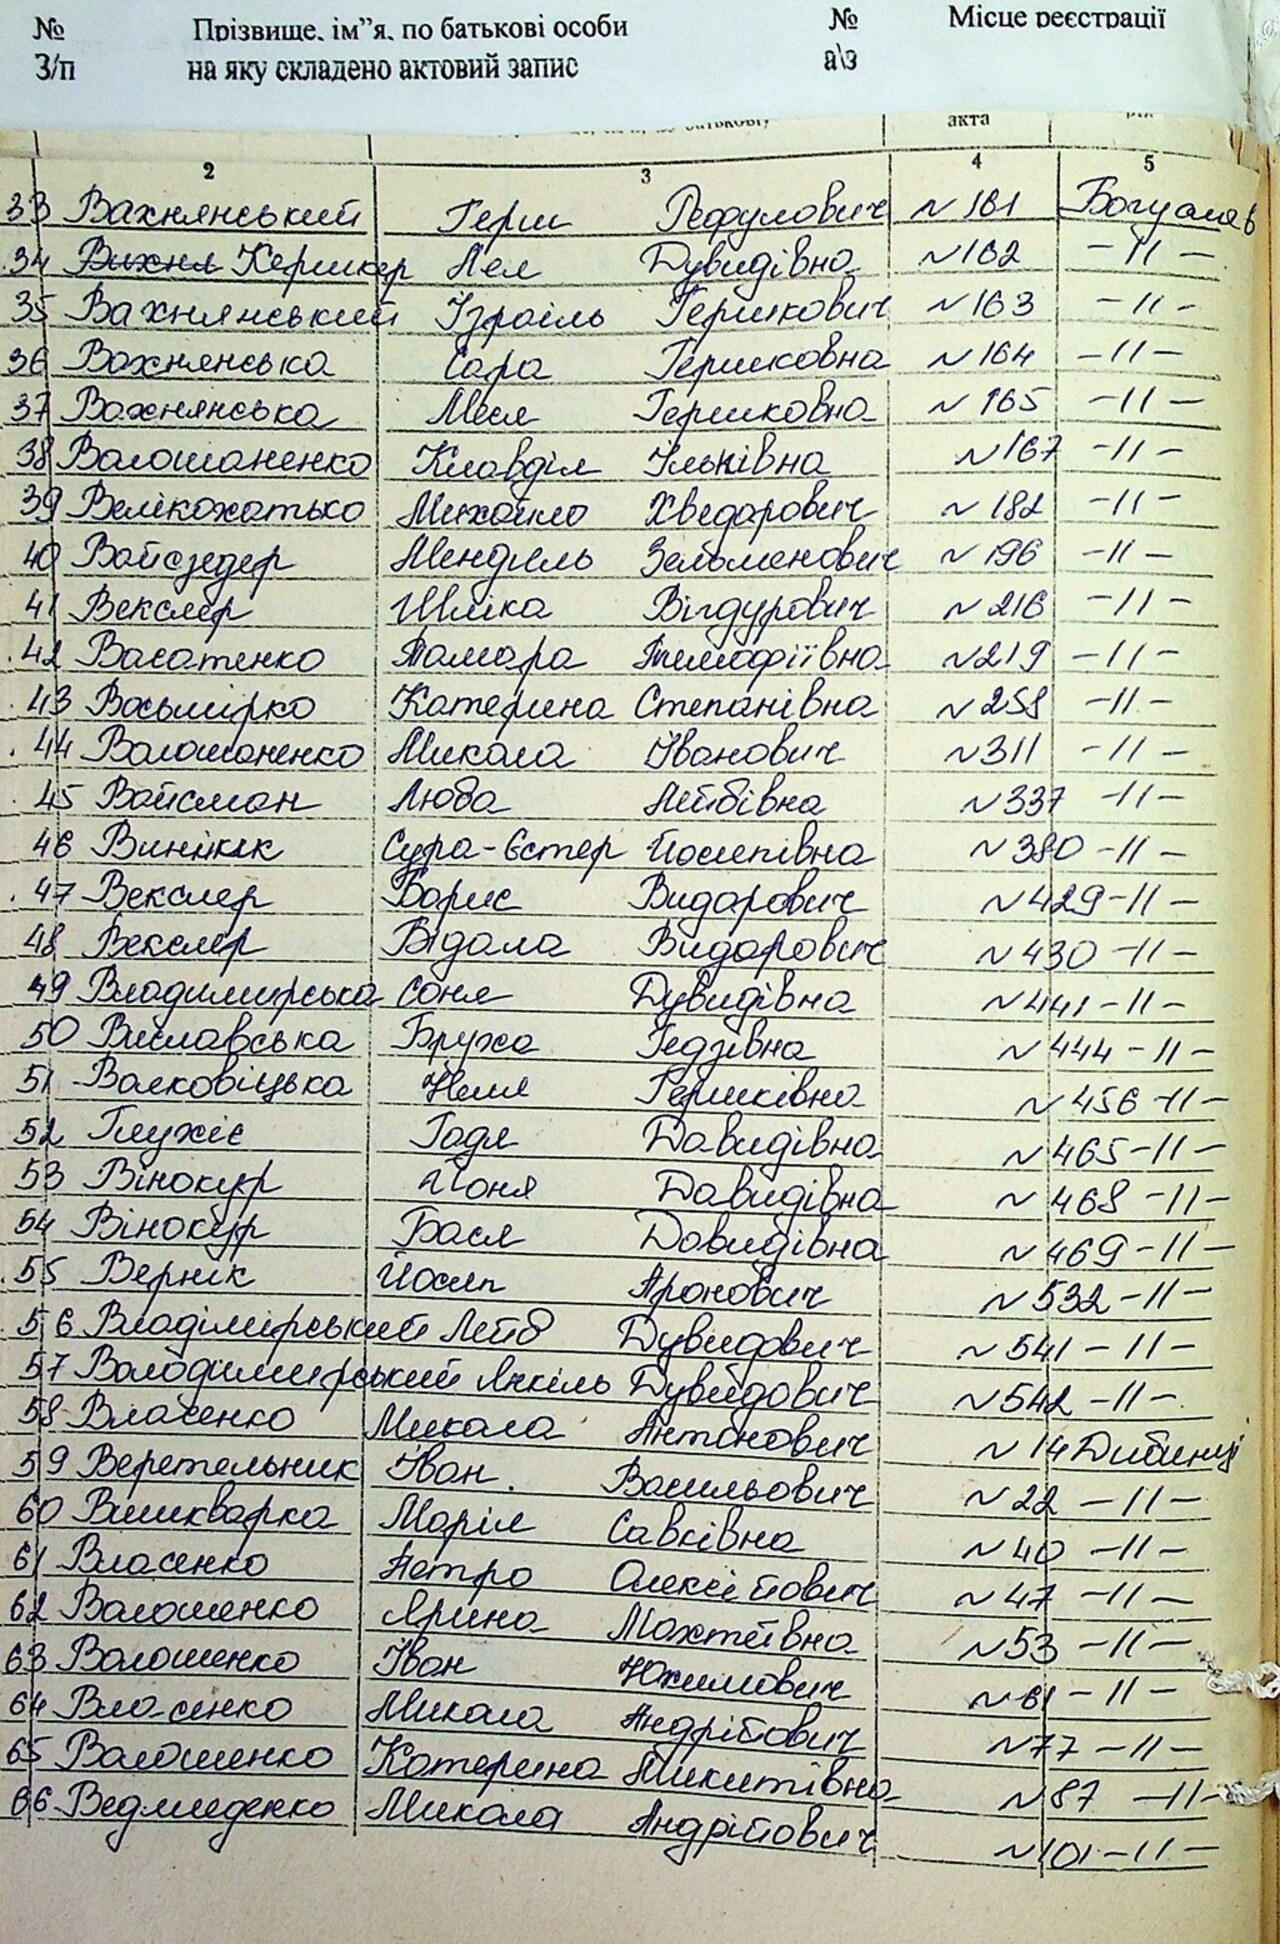 № Прізвище, ім"я, по батькові особи № Місце реєстрації
З/п на яку складено актовий запис а\з
акта
2 3 4 5
33 Вахнянський Герш Рефулович №161 Богуслав
34 Вихня Кершкер Лея Дувидівна №162 -11-
35 Вахнянський Ізраіль Гершкович №163 -11-
36 Вахнянська Сара Гершковна №164 -11-
37 Вахнянська Меся Гершковна №165 -11-
38 Волошаненко Клавділ Ільківна №167 -11-
39 Велікохатько Михайло Хведарович №182 -11-
40 Войсзедер Мендель Зельменович №196 -11-
41 Векслер Шліка Вігдурович №216 -11-
42 Васатенко Тамара Тимофіївна №219 -11-
43 Восьмірко Катерина Степанівна №258 -11-
44 Волошоненко Микола Іванович №311 -11-
45 Войсман Люба Лейбівна №337 -11-
46 Винікік Сура-Єстер Йосипівна №380 -11-
47 Векслер Борис Видарович №429 -11-
48 Векслер Відала Видарович №430 -11-
49 Владимирська Соня Дувидівна №441 -11-
50 Виславська Бруха Гедзівна №444 -11-
51 Волковіцька Неля Гершківна №456 -11-
52 Глухіє Годя Давидівна №465 -11-
53 Вінокур Йоня Давидівна №468 -11-
54 Вінокур Бася Довидівна №469 -11-
55 Вернік Йосип Аронович №532 -11-
56 Владімірський Лейб Дувидович №541 -11-
57 Володимирський Янкіль Дувидович №542 -11-
58 Власенко Микола Антонович №14 Дибинці
59 Веретельник Іван Васильович №22 -11-
60 Вишкварка Маріл Савківна №40 -11-
61 Власенко Петро Олексійович №47 -11-
62 Волошенко Ярина Махтеївна №53 -11-
63 Волошенко Іван Юхимович №61 -11-
64 Власенко Микола Андрійович №77 -11-
65 Волошенко Катерина Микитівна №87 -11-
66 Ведмеденко Микола Андрійович №101 -11-